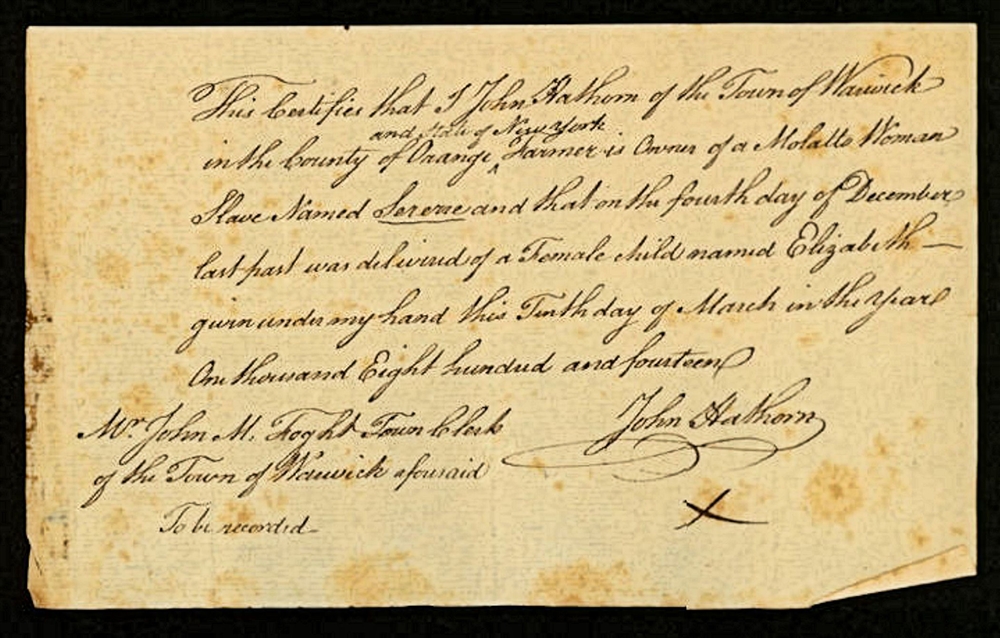 This Certifies that I John Hathorn of the Town of Warwick
and State of New York
in the County of Orange ^ Farmer is Owner of a Molatto Woman
Slave Named Sererie and that on the fourth day of December
last past was delivired of a Female child named Elizabeth —
givin under my hand this Tenth day of March in the Year
One thousand Eight hundred and fourteen
John Hathorn
Mr. John M. Foght Town Clerk
of the Town of Warwick aforesaid
To be recorded
X